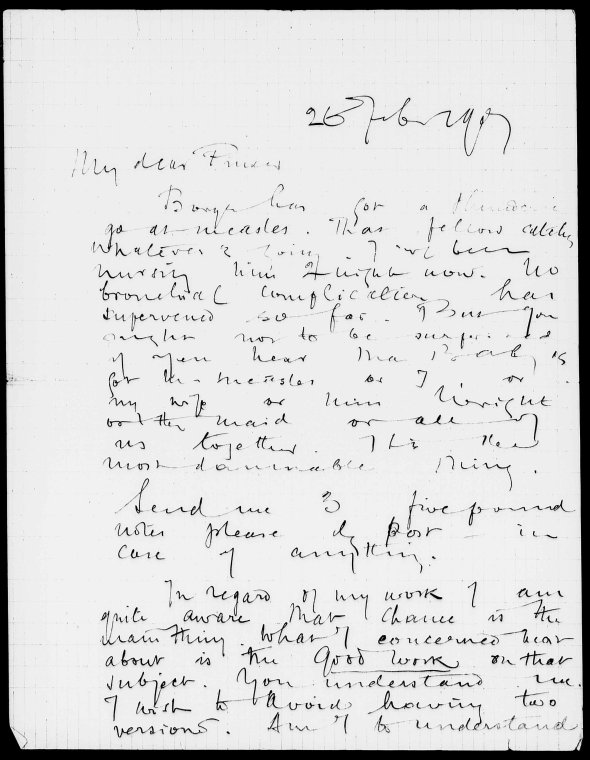 26 Feb 1907
My dear Pinker
Borys has got a
go at measles. That fellow catches
whatever is going. I've been
nursing him night now. No
bronchial complication has
supervened so far. But you
ought not to be surprised
if you hear the Baby is
got the measles or I or
my wife or
or the maid or all of
us together. It is the
most damnable thing.
Send me 3 five pound
notes please by post – in
case of anything.
In regard of my work I am
quite aware that Chance is the
main thing. What I concerned most
about is the Good work on that
subject. You understand me.
I wish to avoid having two
versions. Am I to understand